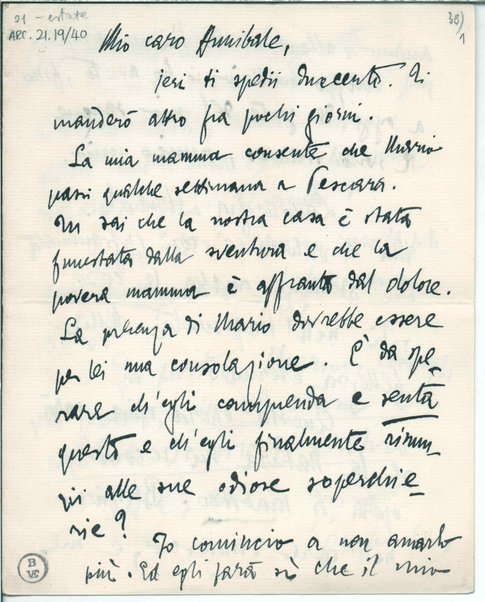 21 - estate
ARC. 21.19/40
38)
1
Mio caro Annibale,
jeri ti spedii duecento. Ti
manderò altro fra pochi giorni.
La mia mamma consente che Mario
passi qualche settimana a Pescara.
Tu sai che la nostra casa è stata
funestata dalla sventura e che la
povera mamma è affranta dal dolore.
La presenza di Mario dovrebbe essere
per lei una consolazione. È da spe-
rare ch'egli comprenda e senta
questo e ch'egli finalmente rinun-
zii alle sue odiose soperchie-
rie?
Io comincio a non amarlo
più. Ed egli farà sì che il mio
B
VE